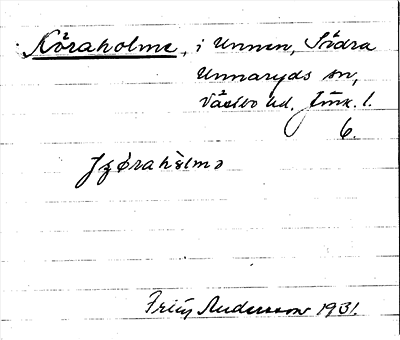 Köraholme, i Unnen, Södra
Unnaryds sn,
Västbo hd, Jönk. l.
6.
Fritz Andersson 1931.